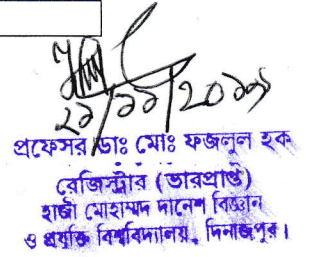 ২১/১১/2০১৯
প্রফেসর ডাঃ মোঃ ফজলুল হক
রেজিস্ট্রার (ভারপ্রাপ্ত)
হাজী মোহাম্মদ দানেশ বিজ্ঞান
ও প্রযুক্তি বিশ্ববিদ্যালয়, দিনাজপুর।